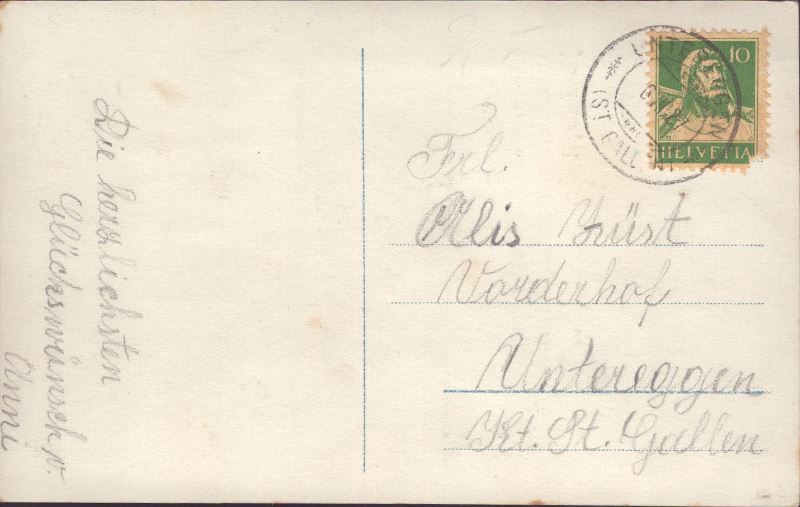 Die herzlichsten
Glückswünsch v.
Anni
10
HELVETIA
UNTEREGGEN
(ST. GALLEN)
Frl.
Alis Züst
Vorderhof
Untereggen
Kt. St. Gallen